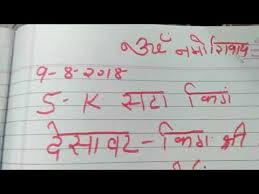 ॐ नमो शिवाय
9-8-2018
S-K सटा किगं
देसावर-किगं श्री